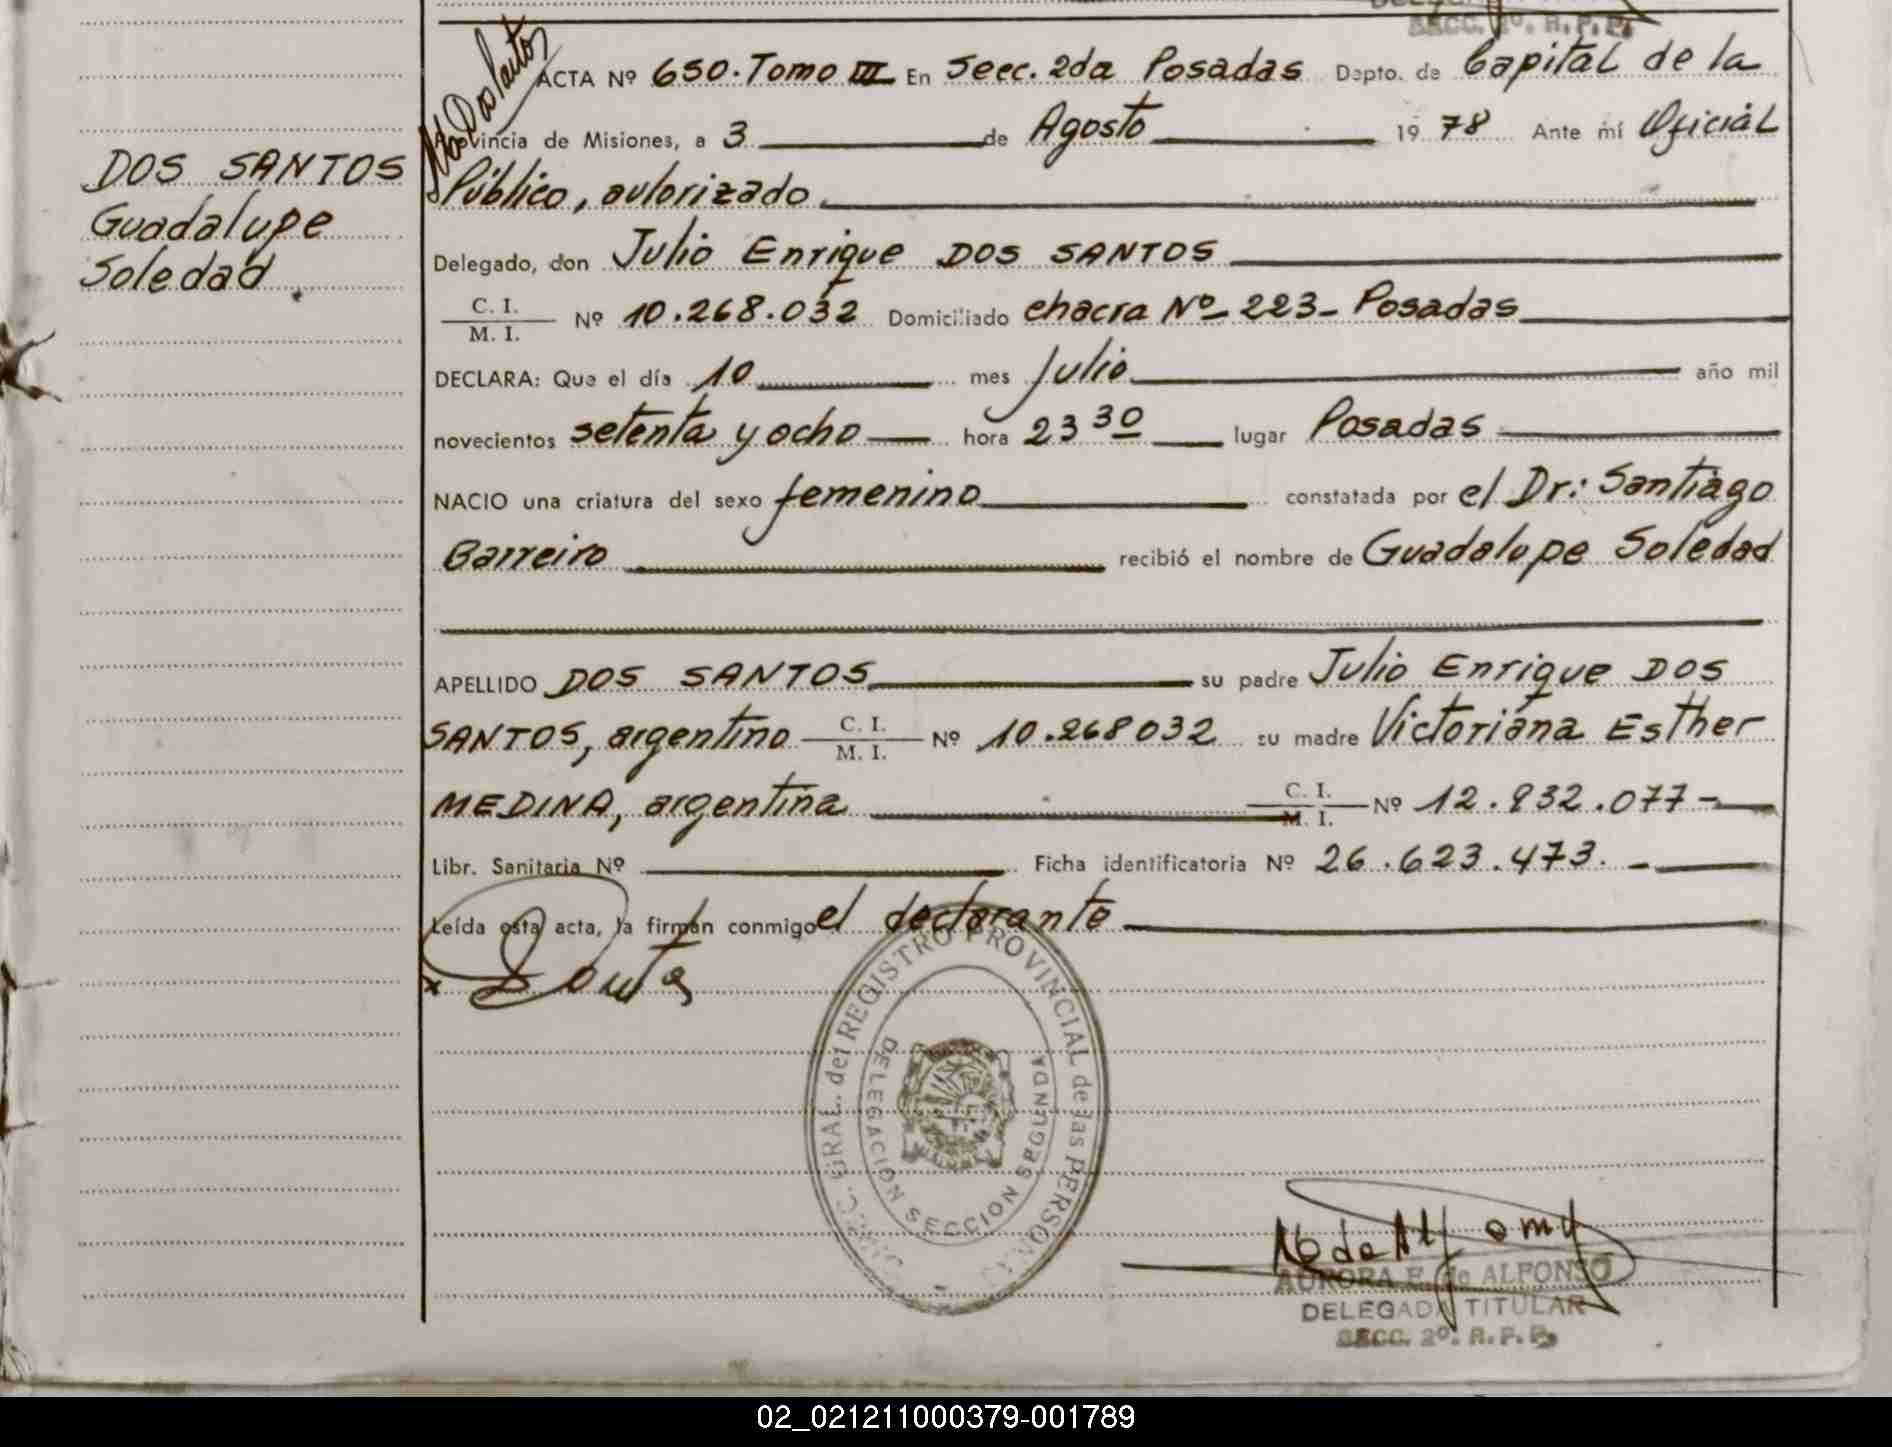 SECC. 2º. R. P. P.
DOS SANTOS
Guadalupe
Soledad.
ACTA Nº 650. Tomo III En Secc. 2da Posadas Depto. de Capital de la
Provincia de Misiones, a 3 de Agosto 1978 Ante mí Oficial
Público, autorizado
Delegado, don Julio Enrique DOS SANTOS
C. I.
M. I. Nº 10.268.032 Domiciliado chacra Nº 223- Posadas
DECLARA: Que el día 10 mes Julio año mil
novecientos setenta y ocho hora 23 30 lugar Posadas
NACIO una criatura del sexo femenino constatada por el Dr: Santiago
Barreiro recibió el nombre de Guadalupe Soledad
APELLIDO DOS SANTOS su padre Julio Enrique DOS
SANTOS, argentino C. I. M. I. Nº 10.268032 su madre Victoriana Esther
MEDINA, argentina C. I. M. I. Nº 12.832.077-
Libr. Sanitaria Nº Ficha identificatoria Nº 26.623.473.-
Leída esta acta, la firman conmigo el declarante
GRAL. del REGISTRO PROVINCIAL de las PERSONAS
DELEGACION SECCION SEGUNDA
AURORA E. de ALFONSO
DELEGADA TITULAR
SECC. 2º. R. P. P.
02_021211000379-001789